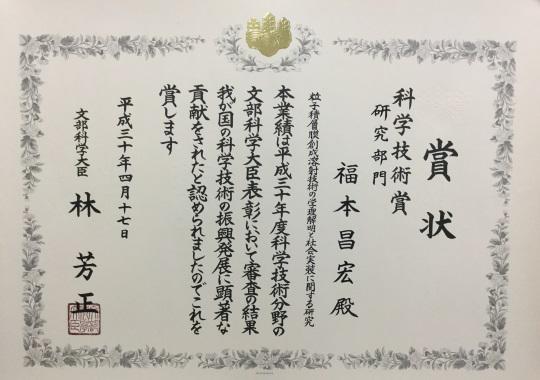 賞状
科学技術賞
研究部門
福本昌宏殿
粒子積層膜創成溶射技術の学理解明と社会実装に関する研究
本業績は平成三十年度科学技術分野の
文部科学大臣表彰において審査の結果
我が国の科学技術の振興発展に顕著な
貢献をされたと認められましたのでこれを
賞します
平成三十年四月十七日
文部科学大臣 林芳正